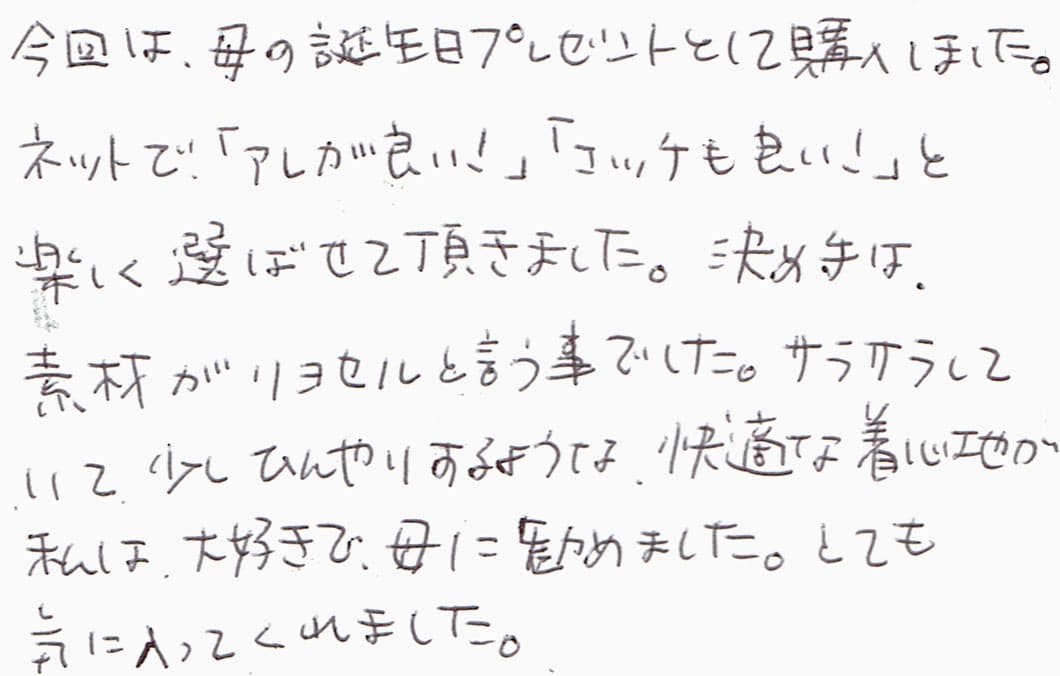 今回は、母の誕生日プレゼントとして購入しました。
ネットで「アレが良い!」「コッチも良い!」と
楽しく選ばせて頂きました。決め手は、
素材がリヨセルと言う事でした。サラサラして
いて、少しひんやりするような、快適な着心地が
私は、大好きで、母に勧めました。とても
気に入ってくれました。